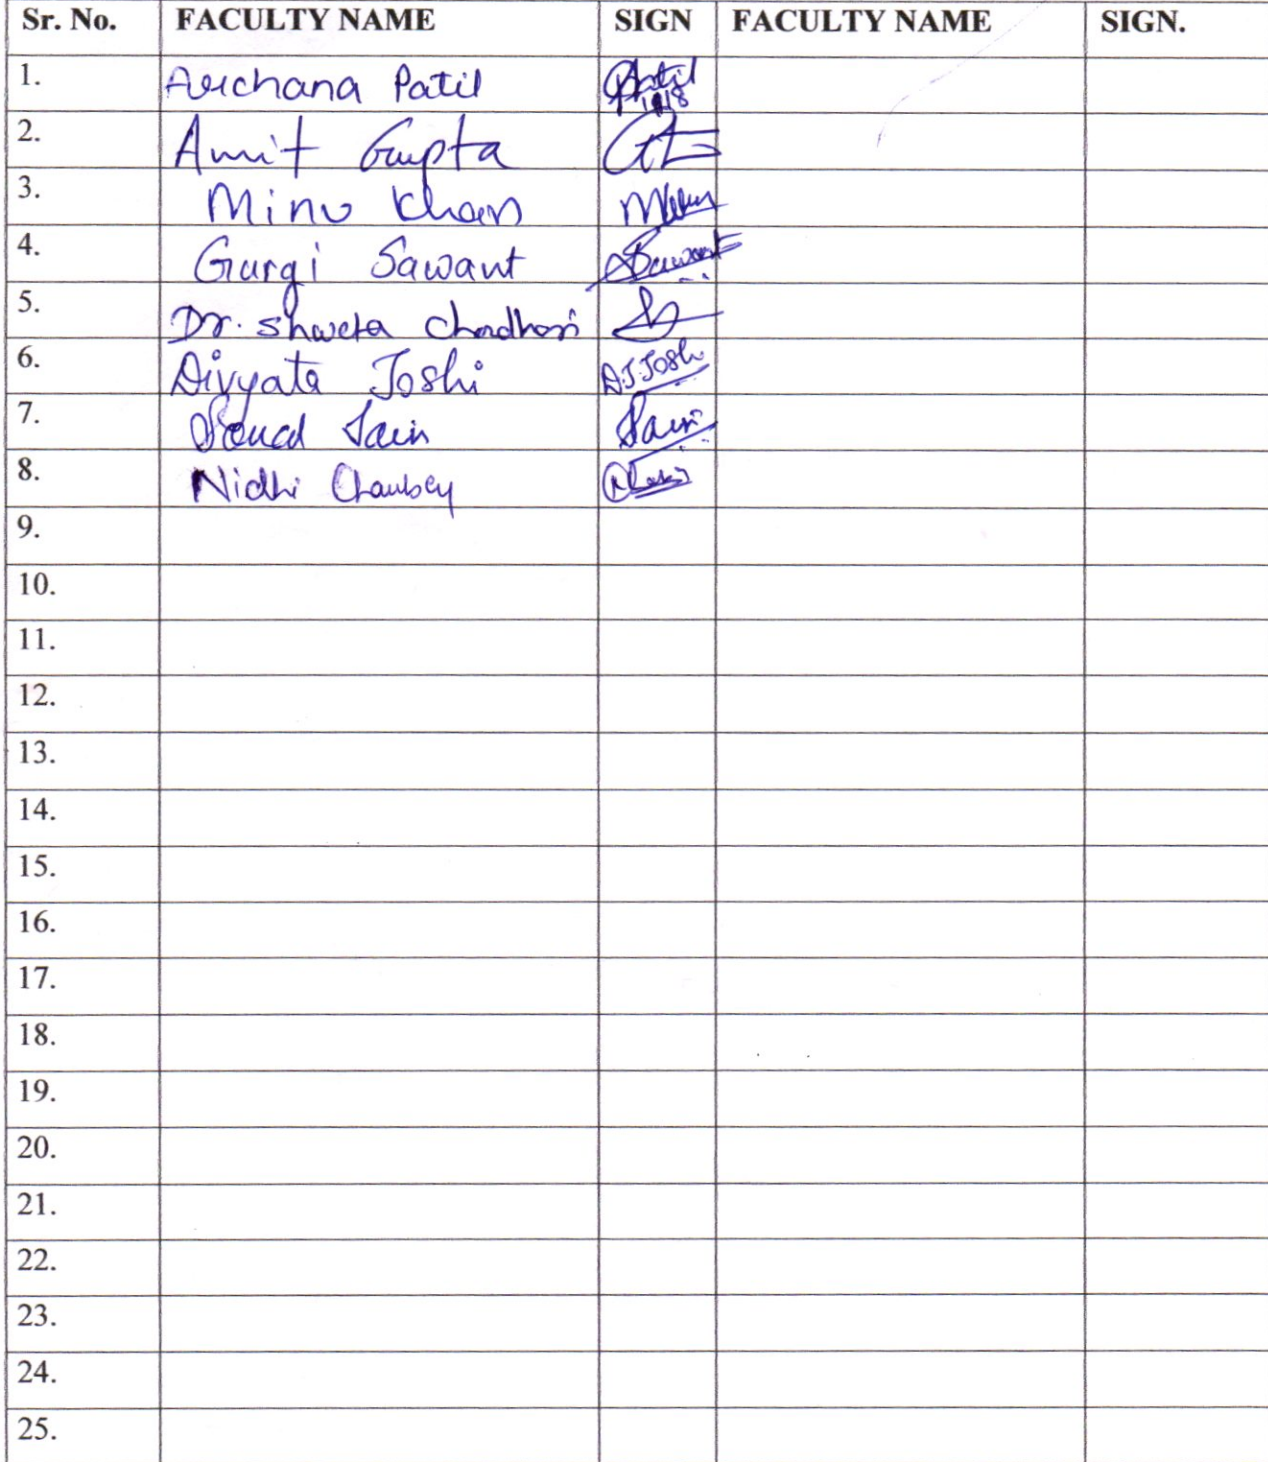 Sr. No. FACULTY NAME SIGN FACULTY NAME SIGN.
1. Archana Patil Patil
2. Amit Gupta
3. Minu Khan
4. Gargi Sawant Sawant
5. Dr. Shweta Chodhari
6. Divyata Joshi D.J.Joshi
7. Jain Jain
8. Nidhi Chaubey
9.
10.
11.
12.
13.
14.
15.
16.
17.
18.
19.
20.
21.
22.
23.
24.
25.